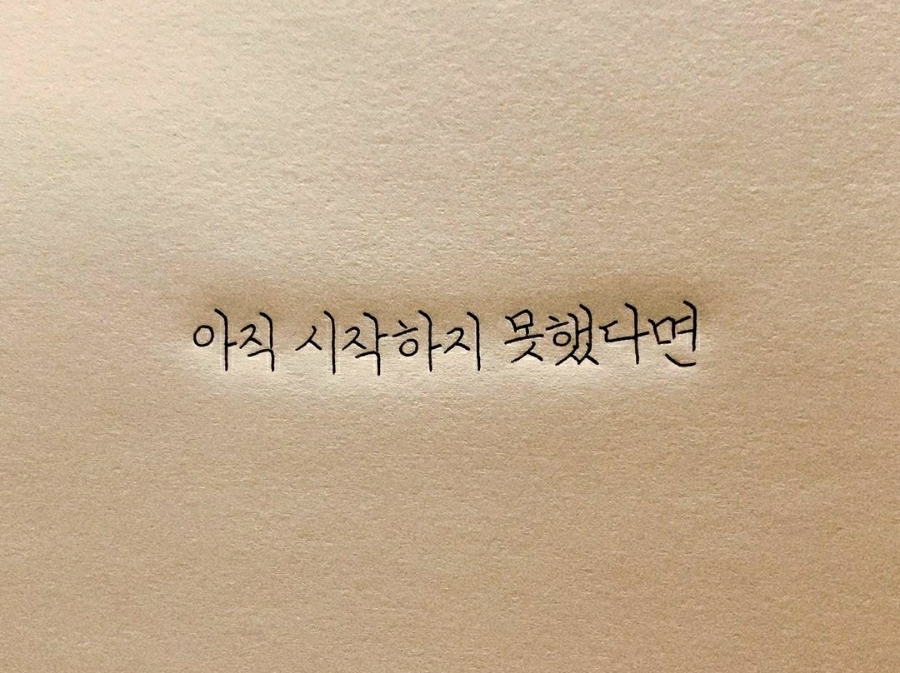 아직 시작하지 못했다면